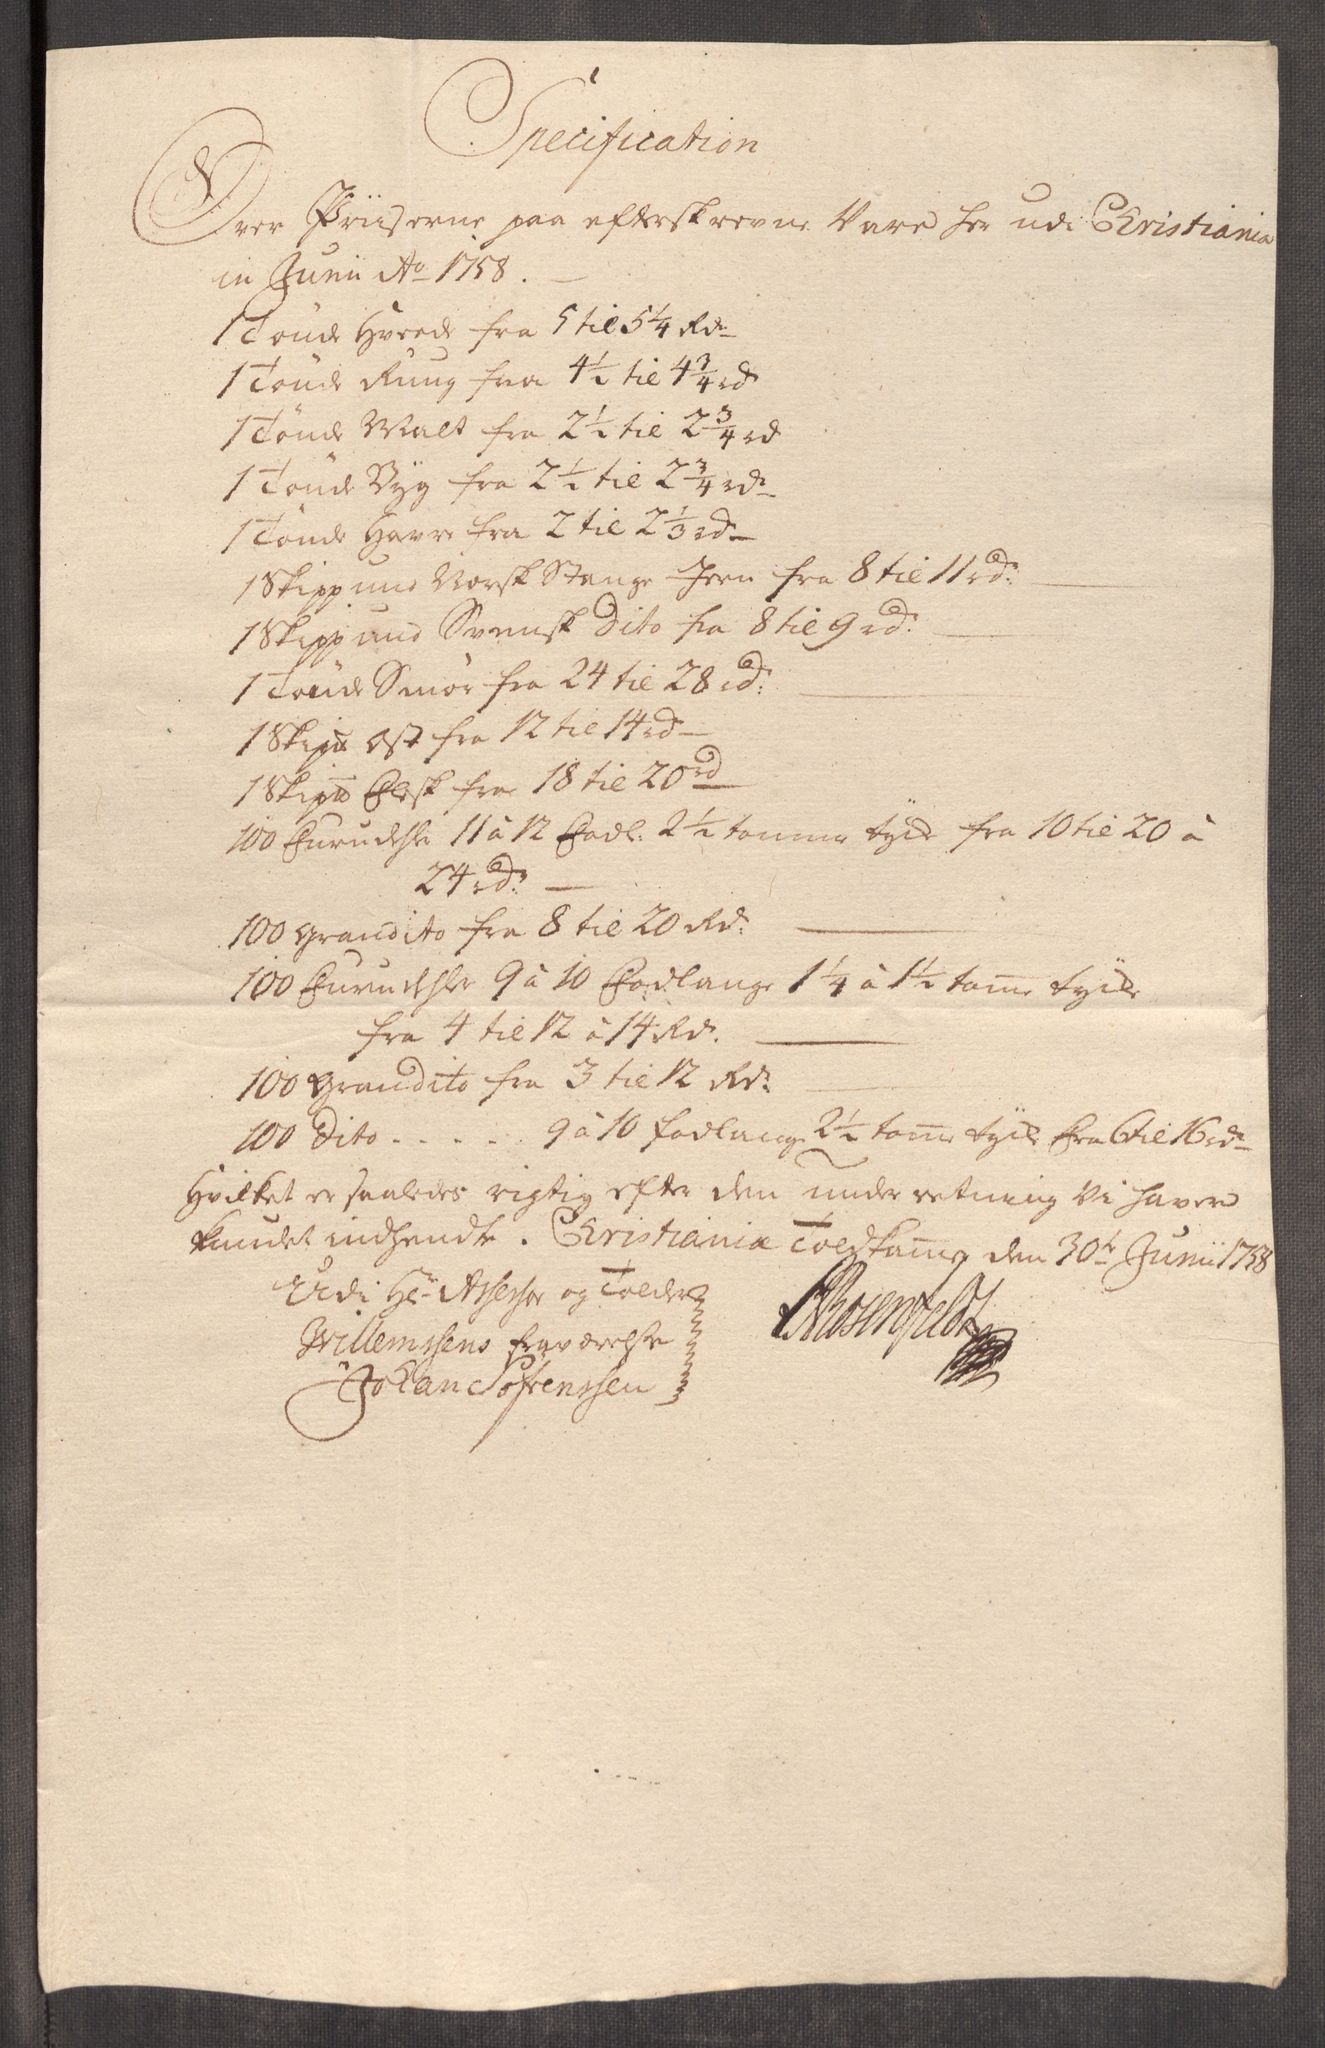 Specification
Over Priiserne paa efterskrevne Vare her udi Christiania
in Junii Ao 1758.
1 Tønde Hvede fra 5 til 5 1/4 Rdr
1 Tønde Rung fra 4 1/2 til 4 3/4 rd
1 Tønde Malt fra 2 1/2 til 2 3/4 rd
1 Tønde Byg fra 2 1/2 til 2 3/4 rdr
1 Tønde Havre fra 2 til 2 1/3 rdr
1 Skippund Norsk Stange Jern fra 8 til 11 rdr:
1 Skippund Svensk Dito fra 8 til 9 rdr:
1 Tønde Smör fra 24 til 28 rd:
1 Skip℔ Ost fra 12 til 14 rd
1 Skip℔ Flesk fra 18 til 20 rd
100 Furudehle 11 à 12 Fodl: 2 1/2 tomme tycke fra 10 til 20 à
24 rdr:
100 Grandito fra 8 til 20 Rdr.
100 Furudehle 9 à 10 Fodlange 1 1/4 à 1 1/2 tome tycke
fra 4 til 12 à 14 Rdr.
100 Grandito fra 3 til 12 Rdr.
100 Dito . . . . . 9 à 10 fodlange 2 1/2 tome tycke fra 6 til 16 rdr
Hvilket er saaledes rigtig efter den underretning Vi haver
kundet indhendte. Christiania Toldkamer den 30te Junii 1758
Udi Hr. Assessor og Tolder
Willemssens fraværelse
Johan Sofrenssen
Rosenfeldt